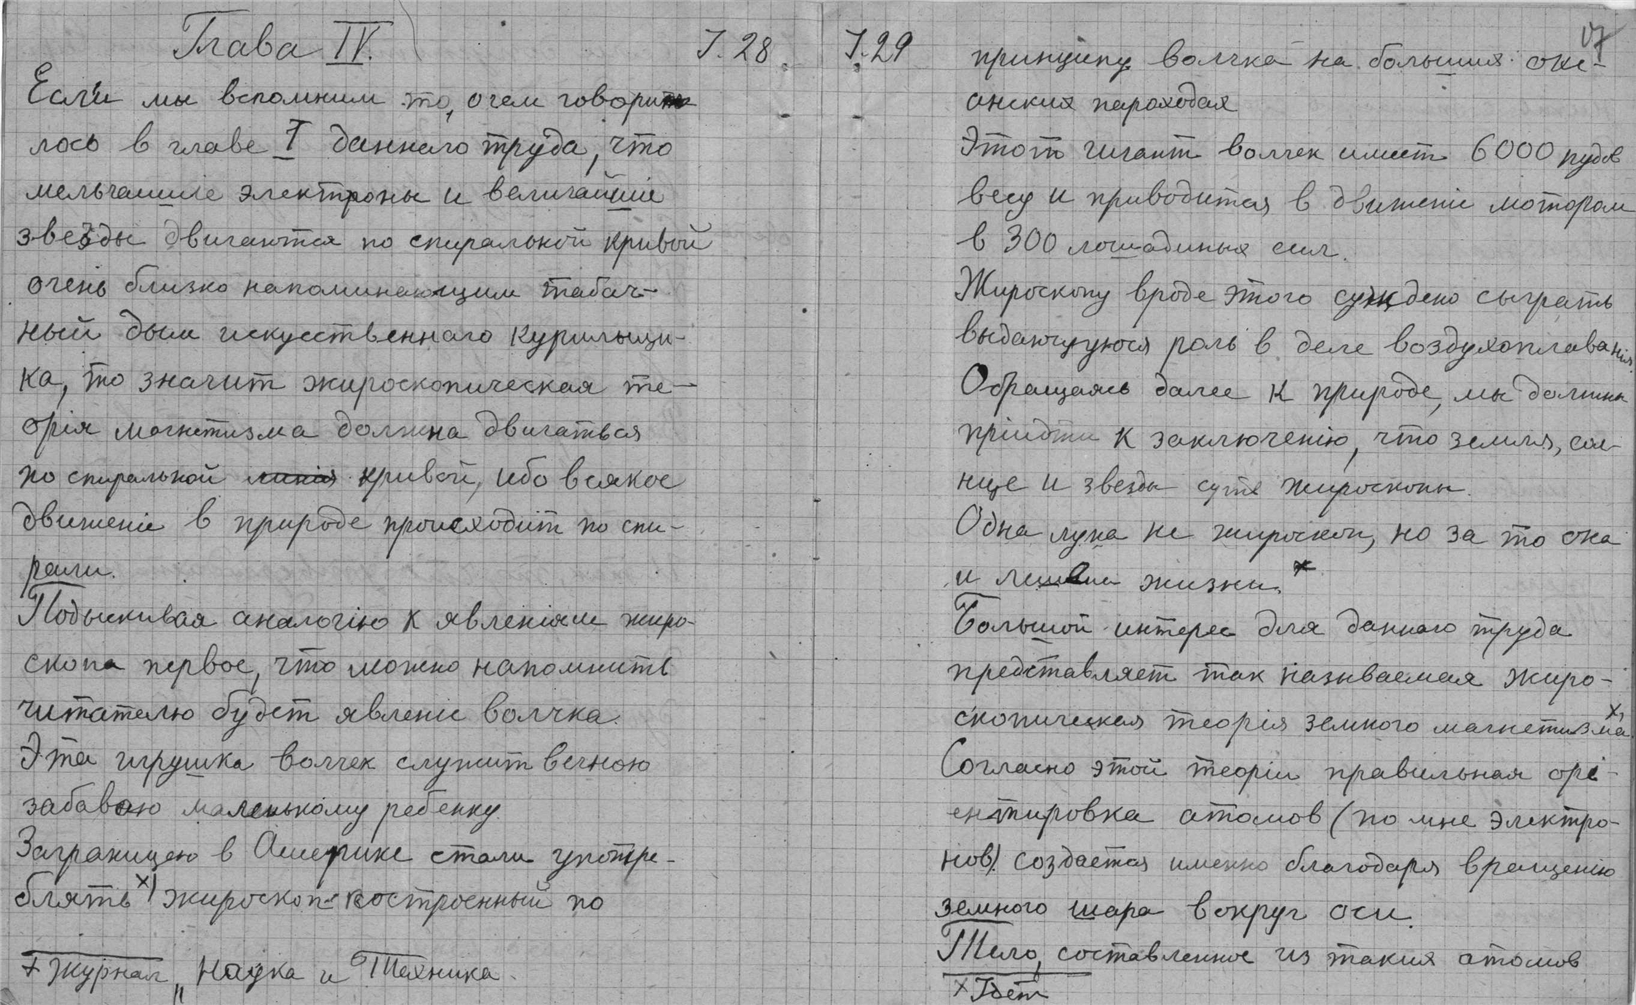 Глава IV.
I. 28
Если мы вспомним то, о чем говори
лось в главе I даннаго труда, что
мельчашие электроны и величайшие
звезды двигаются по спиральной кривой
очень близко напоминающим табач-
ный дым искусственнаго курильщи-
ка, то значит жироскопическая те-
орія магнетизма должна двигаться
по спиральной линія кривой, ибо всякое
движеніе в природе происходит по спи-
рали.
Подыскивая аналогію к явленіям жиро-
скопа первое, что можно напомнить
читателю будет явленіе волчка.
Эта игрушка волчек служит вечною
забавою маленькому ребенку.
Заграницею в Америке стали употре-
блять х) жироскоп построенный по
+ Журнал „Наука и Техника.
I. 29
17
принципу волчка на больших оке-
анских пароходах
Этот гигант волчек имеет 6000 пудов
весу и приводится в движеніе мотором
в 300 лошадиных сил.
Жироскопу вроде этого суждено сыграть
выдающуюся роль в деле воздухоплаванія.
Обращаясь далее к природе, мы должны
прійдти к заключенію, что земля, сол-
нце и звезды суть жироскопы.
Одна луна не жироскоп, но за то она
и лишена жизни. х
Большой интерес для даннаго труда
представляет так называемая жиро-
скопическая теорія земного магнетизма х)
Согласно этой теоріи правильная орі-
ентировка атомов (по мне электро-
нов) создается именно благодаря вращенію
земного шара вокруг оси.
Тело, составленное из таких атомов
х Тоет